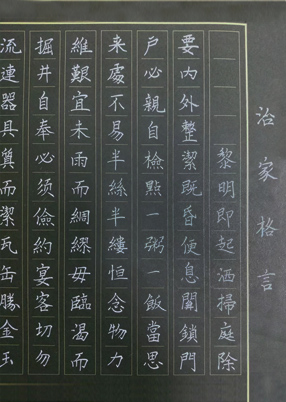 治家格言
黎明即起洒掃庭除
要內外整潔既昏便息關鎖門
戶必親自檢點一粥一飯當思
来處不易半絲半縷恒念物力
維艱宜未雨而綢繆毋臨渴而
掘井自奉必須儉約宴客切勿
流連器具質而潔瓦缶勝金玉